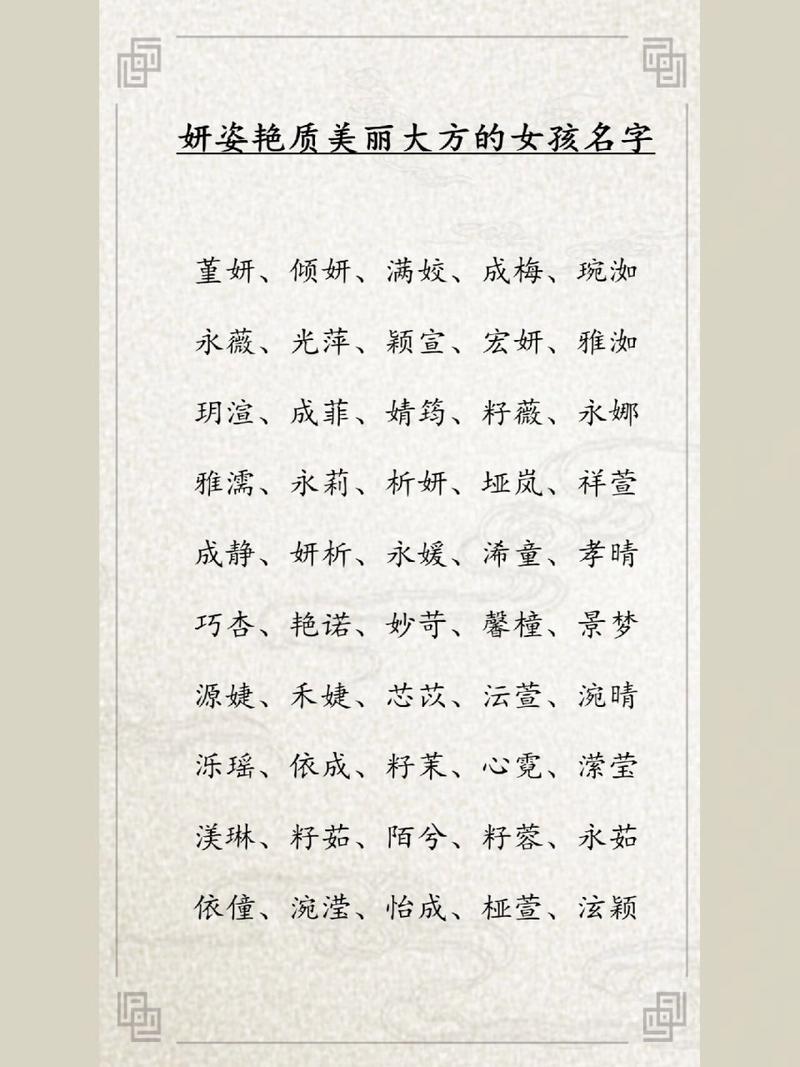 妍姿艳质美丽大方的女孩名字
堇妍、倾妍、满姣、成梅、琬洳
永薇、光萍、颖宣、宏妍、雅洳
玥渲、成菲、婧筠、籽薇、永娜
雅濡、永莉、析妍、垭岚、祥萱
成静、妍析、永媛、浠童、孝晴
巧杏、艳诺、妙苛、馨橦、景梦
源婕、禾婕、芯苡、沄萱、涴晴
泺瑶、依成、籽茉、心霓、潆莹
渼琳、籽茹、陌兮、籽蓉、永茹
依僮、涴滢、怡成、桠萱、泫颖